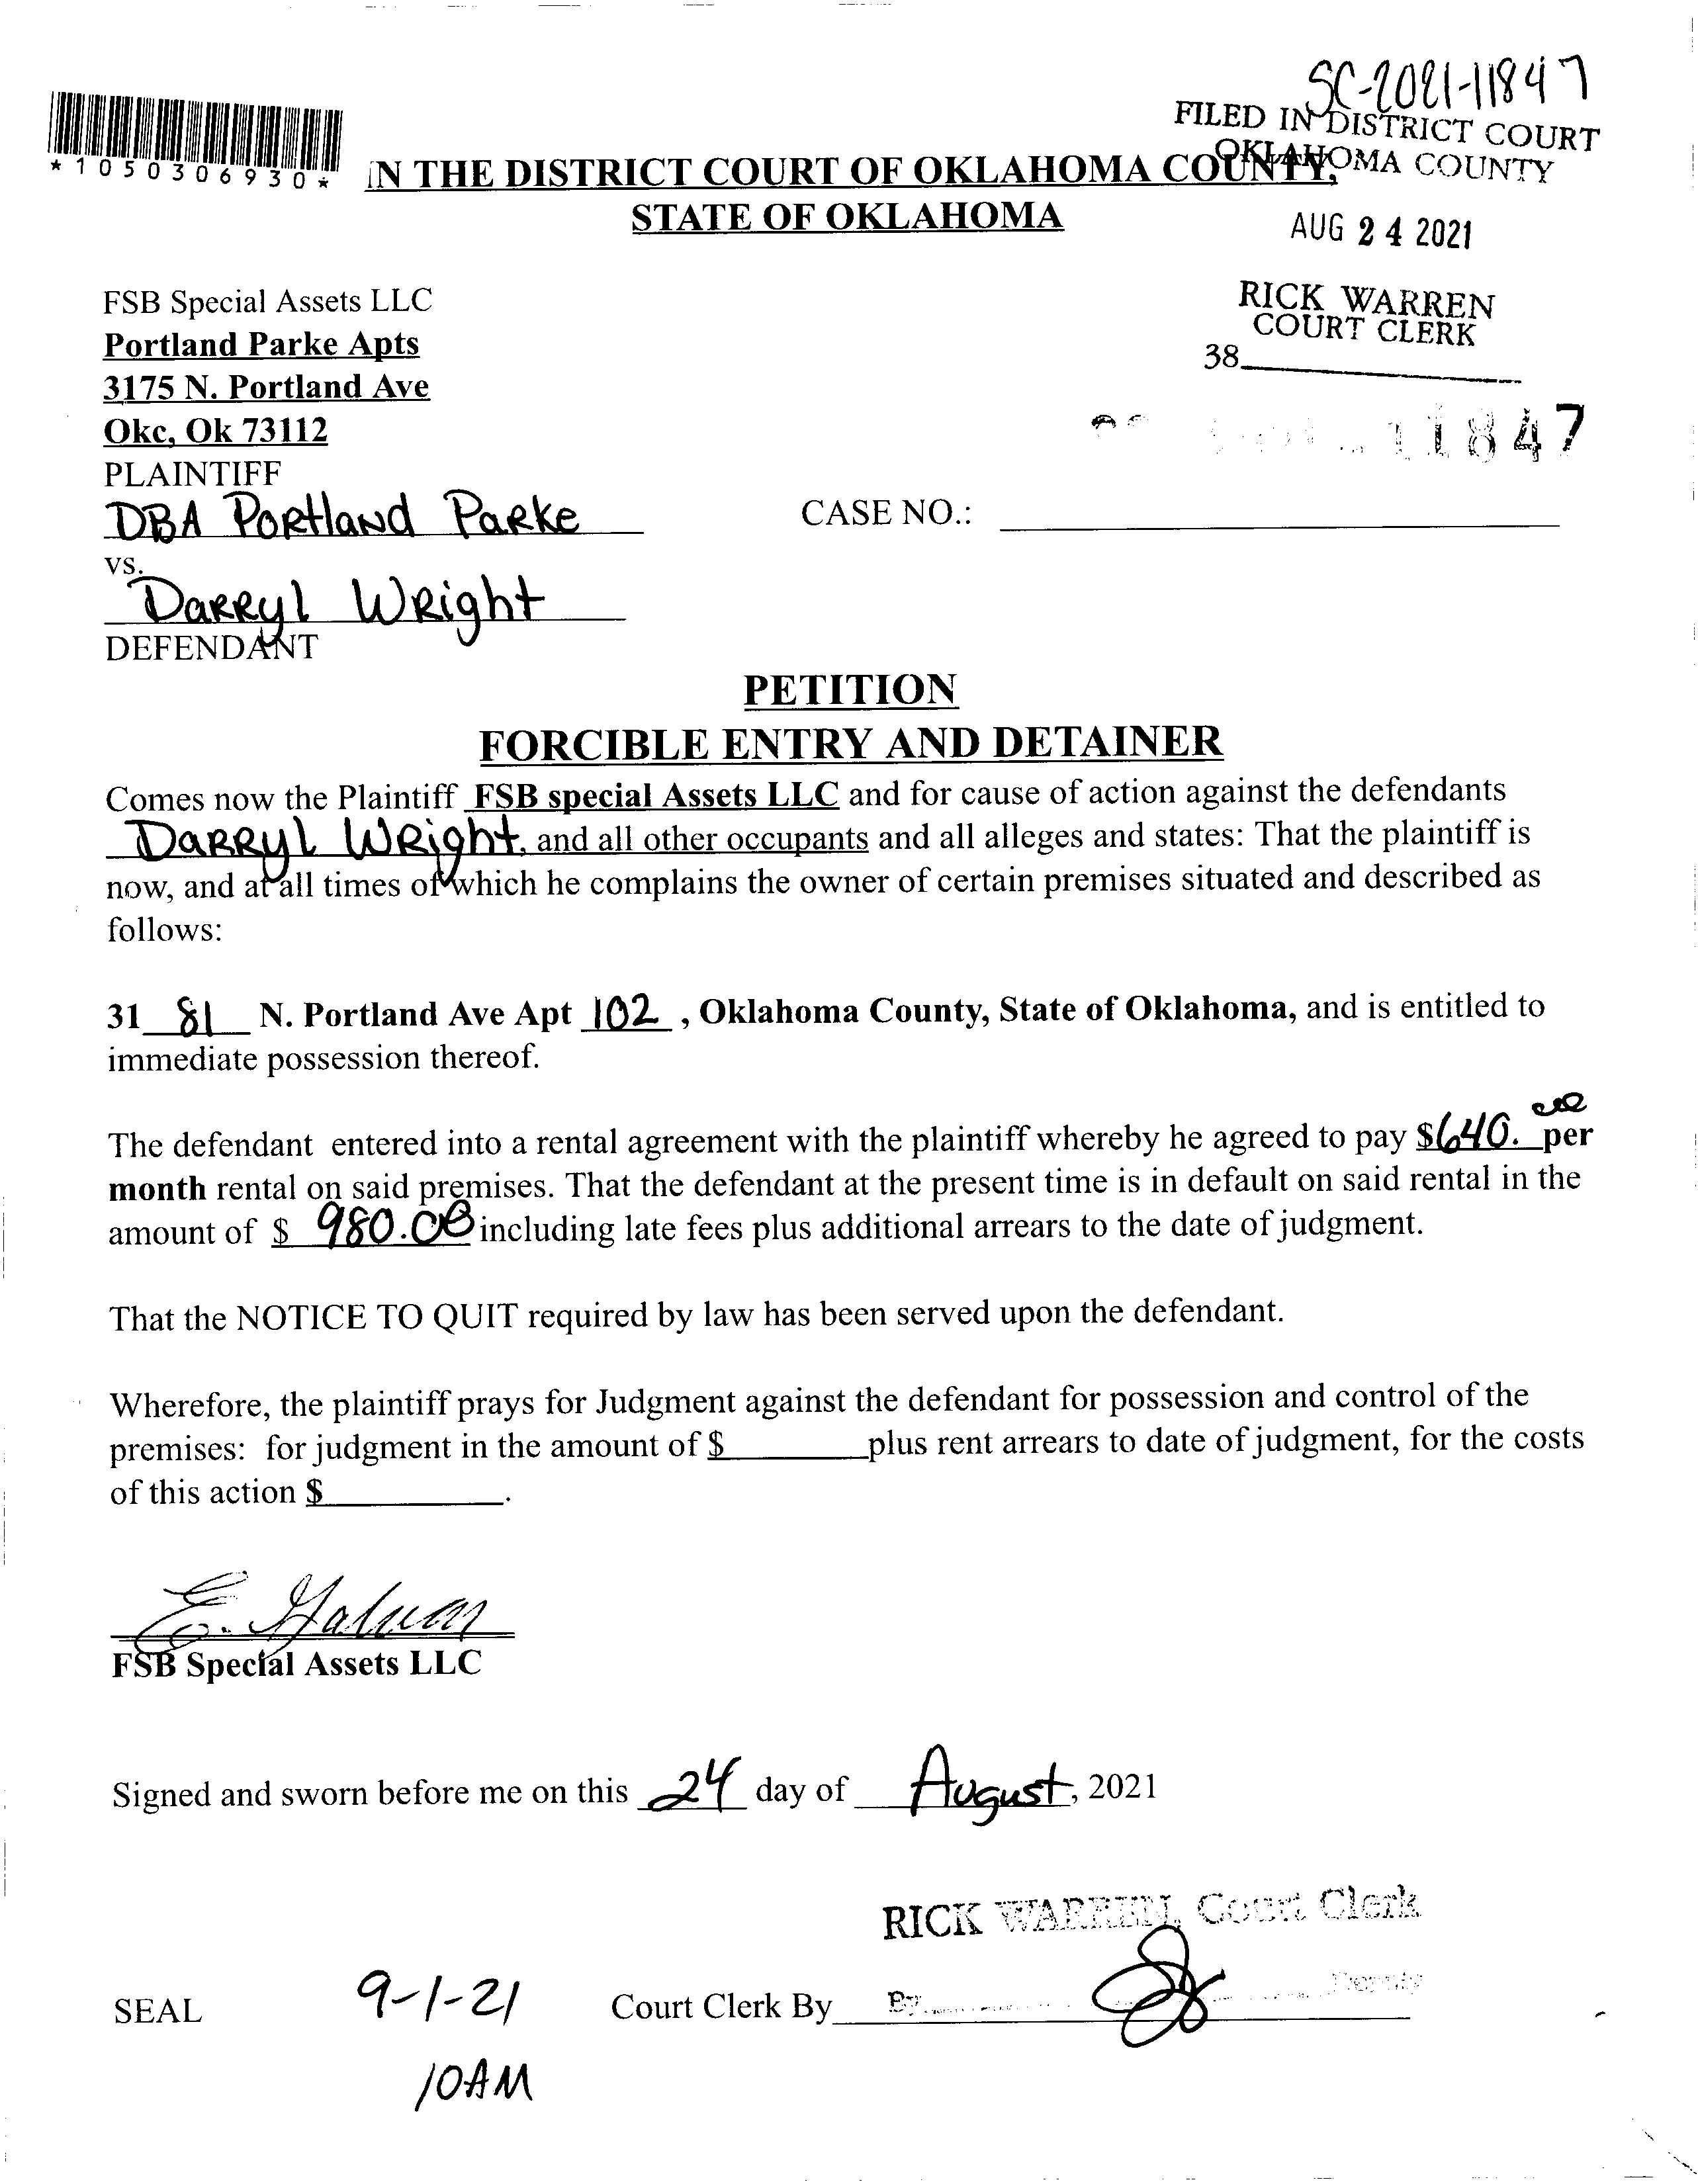 SC-2021-11847
FILED IN DISTRICT COURT
OKLAHOMA COUNTY
*1050306930*
IN THE DISTRICT COURT OF OKLAHOMA COUNTY,
STATE OF OKLAHOMA
AUG 24 2021
FSB Special Assets LLC
RICK WARREN
COURT CLERK
Portland Parke Apts
38
3175 N. Portland Ave
Okc, Ok 73112
11847
PLAINTIFF
DBA Portland Parke
CASE NO.:
vs.
Darryl Wright
DEFENDANT
PETITION
FORCIBLE ENTRY AND DETAINER
Comes now the Plaintiff FSB special Assets LLC and for cause of action against the defendants
Darryl Wright, and all other occupants and all alleges and states: That the plaintiff is
now, and at all times of which he complains the owner of certain premises situated and described as
follows:
31 81 N. Portland Ave Apt 102, Oklahoma County, State of Oklahoma, and is entitled to
immediate possession thereof.
The defendant entered into a rental agreement with the plaintiff whereby he agreed to pay $640.00 per
month rental on said premises. That the defendant at the present time is in default on said rental in the
amount of $ 980.00 including late fees plus additional arrears to the date of judgment.
That the NOTICE TO QUIT required by law has been served upon the defendant.
Wherefore, the plaintiff prays for Judgment against the defendant for possession and control of the
premises: for judgment in the amount of $ plus rent arrears to date of judgment, for the costs
of this action $ .
FSB Special Assets LLC
Signed and sworn before me on this 24 day of August, 2021
RICK WARREN, Court Clerk
SEAL 9-1-21 Court Clerk By By Deputy
10AM